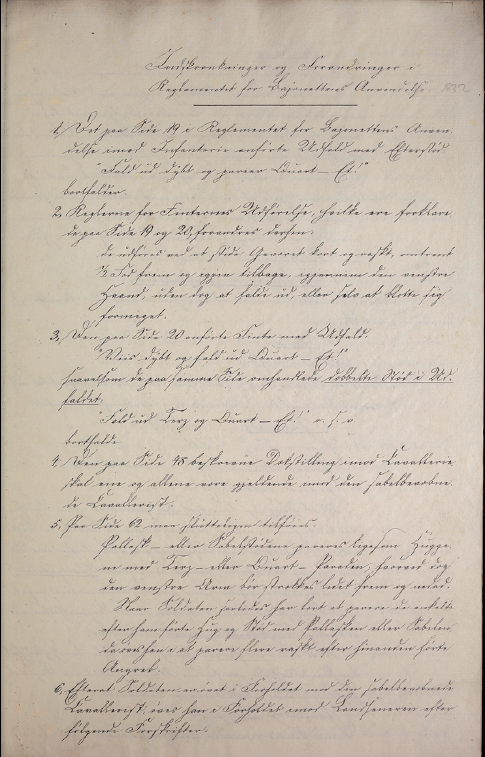 Indskrænkninger og Forandringer i
Reglementet for Bajonettens Anvendelse 1832
1, Det paa Side 19 i Reglementet for Bajonettens Anven-
delse imod Infanterie anførte Udfald med Efterstød
"Fald ud dybt og pareer Quart – Et!"
bortfalder.
2, Reglerne for Finternes Udførelse, hvilke ere forklare-
de paa Side 19 og 20, forandres derhen:
de udføres ved at støde Geværet kort og raskt, omtrent
½ Fod frem og igjen tilbage, igjennem den venstre
Haand, uden dog at falde ud, eller selv at støtte sig
formeget.
3, Den paa Side 20 anførte Finte med Udfald.
"Viis dybt og fald ud Quart – Et!"
saavelsom de paa samme Side omhandlede dobbelte Stød i Ud-
faldet,
"Fald ud Terz og Quart – Et!" o. s. v.
bortfalde
4, Den paa Side 48 beskrevne Dækstilling imod Cavallerie
skal ene og allene være gjeldende mod den sabelbevæbne-
de Cavallerist.
5, Paa Side 62 maa tilføies:
Pallask – eller Sabelstødene pareres ligesom Huggene
med Terz – eller Quart – Paraden, hvorved dog
den venstre Arm bør strækkes lidt frem og nedad.
Naar Soldaten saaledes har lært at parere de enkelte
efter ham førte Hug og Stød med Pallasken eller Sabelen,
da øves han i at parere flere raskt efter hinanden førte
Angreb.
6, Efterat Soldaten er øvet i Forholdet mod den sabelbevæbnede
Cavallerist, øves han i Forholdet imod Landseneren efter
følgende Forskrifter.